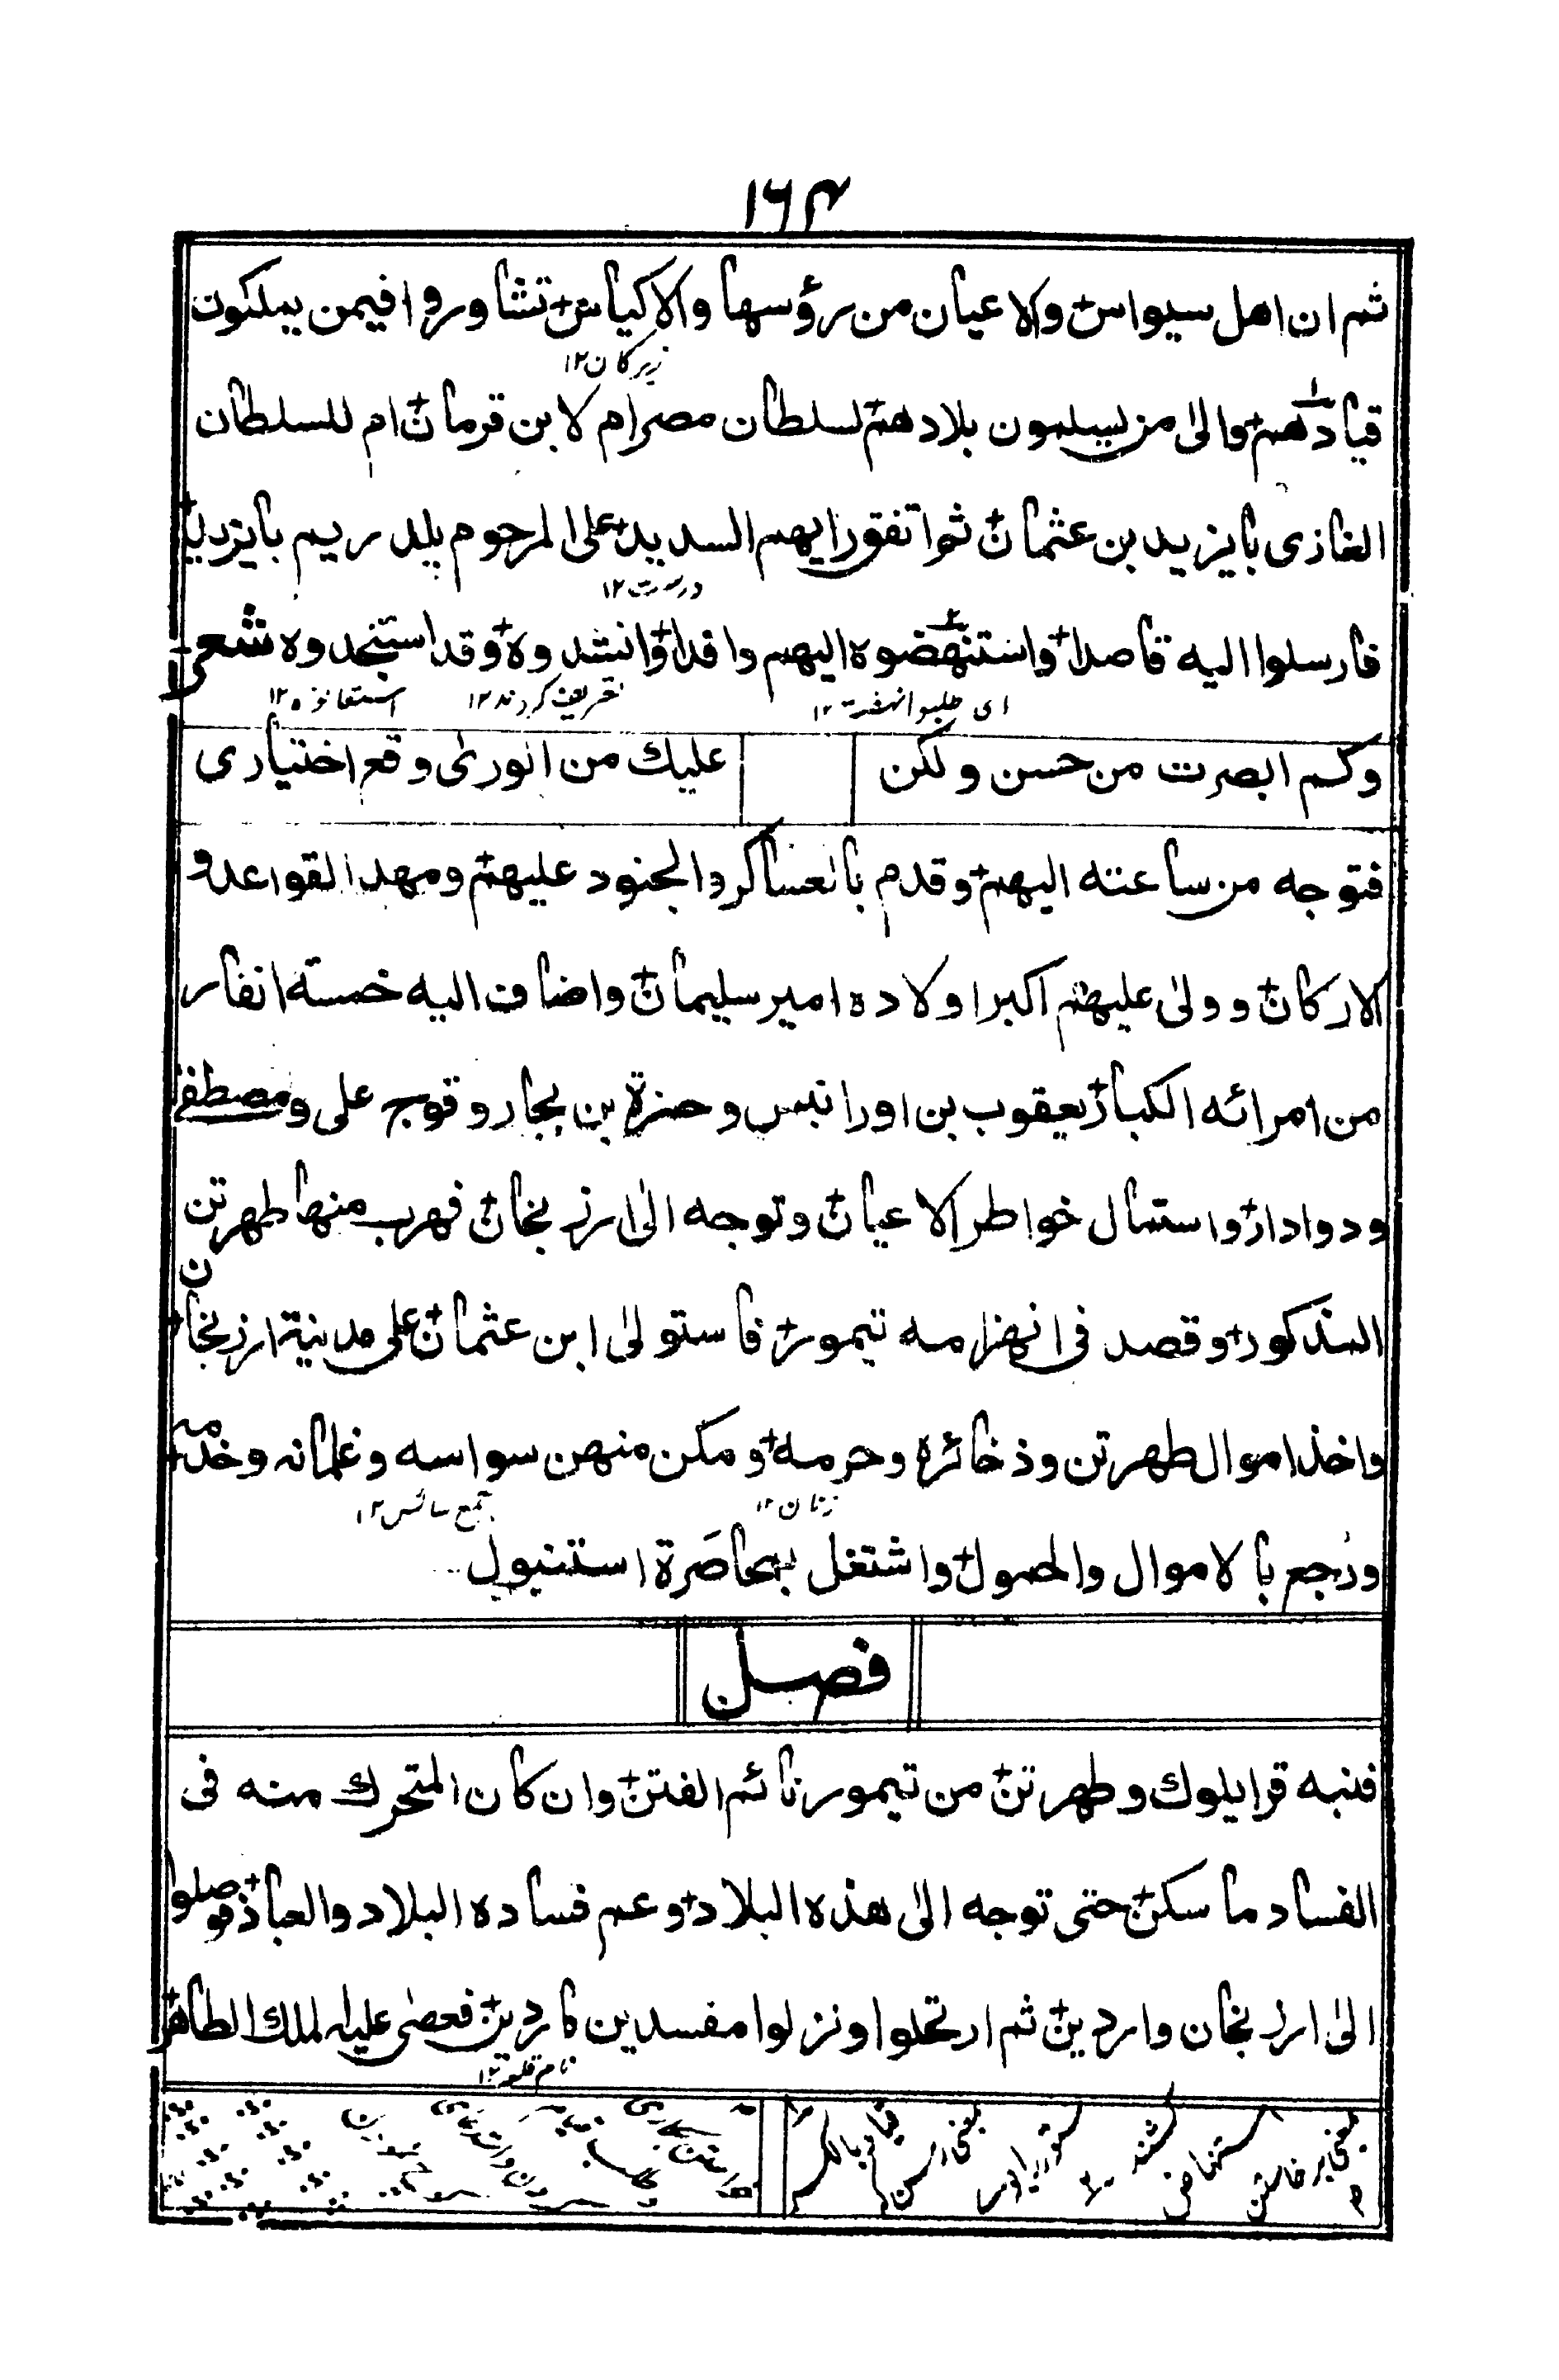 ١٦٤
ثم ان اهل سيواس والاعيان من رؤسها والاكياس تشاوروا فيمن يملكون
زیرکان ١٢
قيادهم والى من يسلمون بلادهم لسلطان مصر ام لابن قرمان ام للسلطان
الغازى بايزيد بن عثمان ثم اتفق رايهم السديد على المرحوم يلدريم بايزيد
درست ١٢
فارسلوا اليه قاصدا واستنهضوه اليهم وافدا وانشدوه وقد استنجدوه شعر
اى طلبوا نهضته ١٢
استعانوه ١٢
وكم ابصرت من حسن ولكن
عليك من الورى وقع اختيارى
فتوجه من ساعته اليهم وقدم بالعساكر والجنود عليهم ومهد القواعد و
الاركان وولى عليهم اكبر اولاده امير سليمان واضاف اليه خمسة انفار
من امرائه الكبار يعقوب بن اورانبس وحمزة بن بجار وقوج على ومصطفى
ودوادار واستمال خواطر الاعيان وتوجه الى ارزنجان فهرب منها طهرتن
المذكور وقصد فى انهزامه تيمور فاستولى ابن عثمان على مدينة ارزنجان
واخذ اموال طهرتن وذخائره وحرمه ومكن منهن سواسه وغلمانه وخدمه
زنان ١٢
جمع سائس ١٢
ورجع بالاموال والحمول واشتغل بمحاصَرة استنبول
فصل
فنبه قرايلوك وطهرتن من تيمور نائم الفتن وان كان المتحرك منه فى
الفساد ما سكن حتى توجه الى هذه البلاد وعم فساده البلاد والعباد فوصلوا
الى ارزنجان واردين ثم ارتحلوا ونزلوا مفسدين ماردين فعصى عليه الملك الطاهر
نام قلعه ١٢